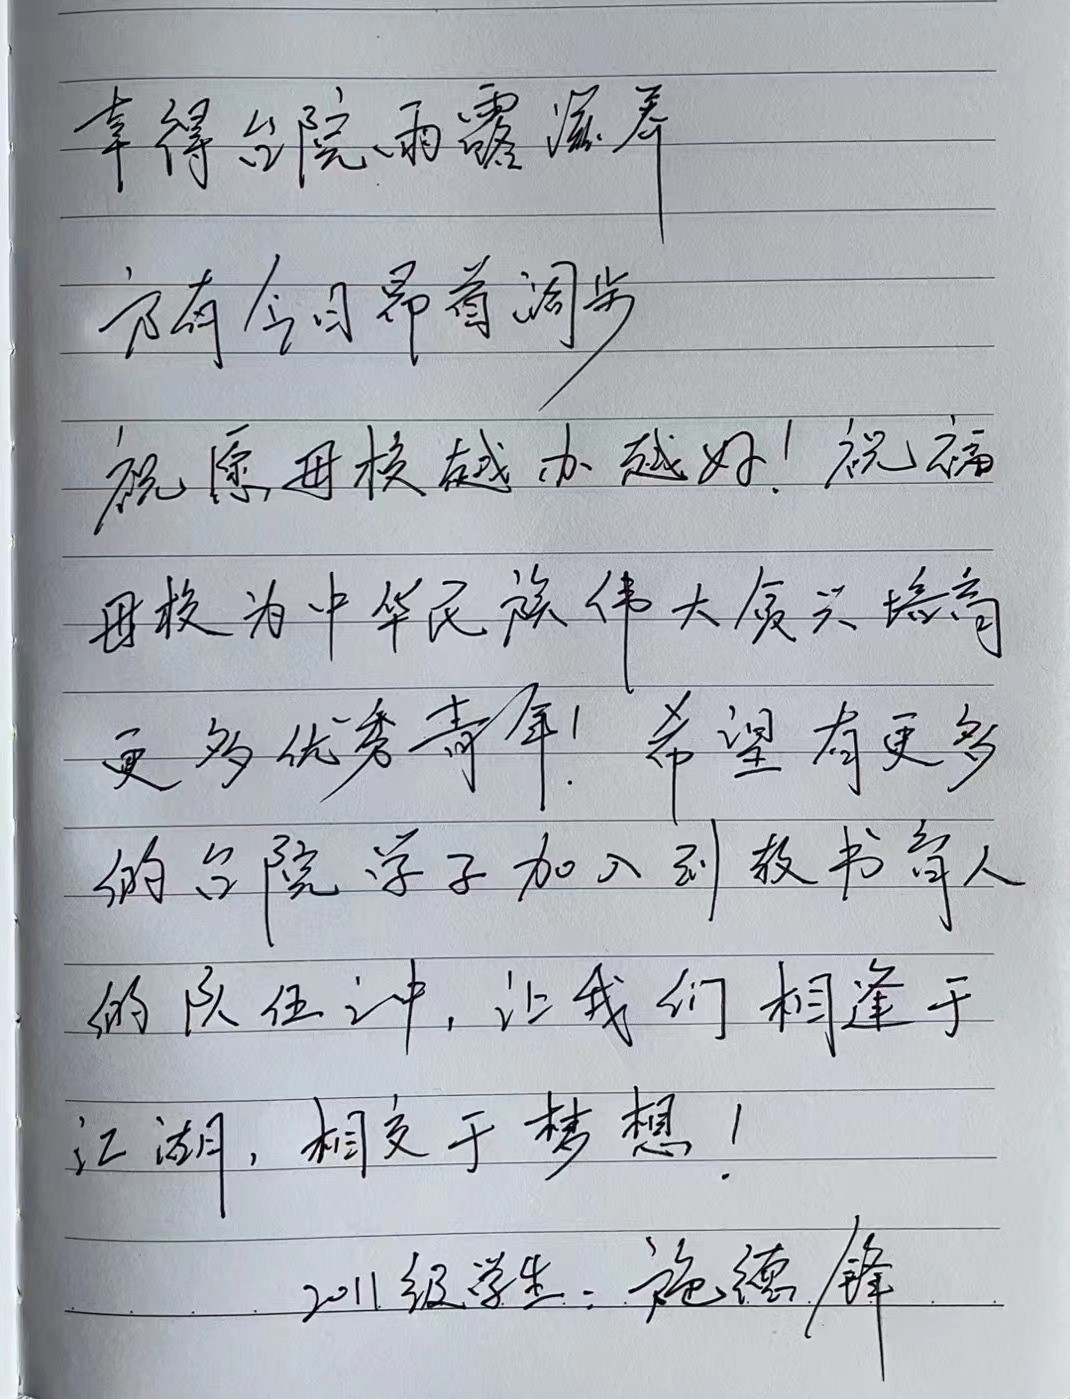 幸得台院雨露滋养
方有今日昂首阔步
祝愿母校越办越好！祝福
母校为中华民族伟大复兴培育
更多优秀青年！希望有更多
的台院学子加入到教书育人
的队伍之中，让我们相逢于
江湖，相交于梦想！
2011级学生：施德锋